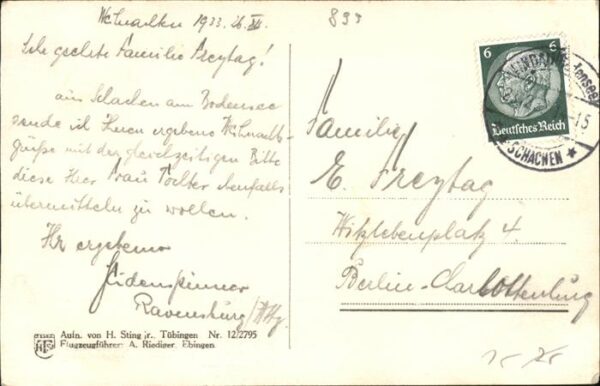 Weihnachten 1933. 26. XII.
Sehr geehrte Familie Freytag!
aus Schachen am Bodensee
sende ich Ihnen ergebene Weihnachts-
grüße mit der gleichzeitigen Bitte
diese Ihrer Frau Tochter ebenfalls
übermitteln zu wollen.
Ihr ergebener
Seidenspinner
Ravensburg/Wttbg.
Aufn. von H. Sting jr., Tübingen Nr. 12/2795
Flugzeugführer: A. Riediger, Ebingen
893
6 6
Deutsches Reich
SCHACHEN
Familie
E. Freytag
Witzlebenplatz 4.
Berlin-Charlottenburg